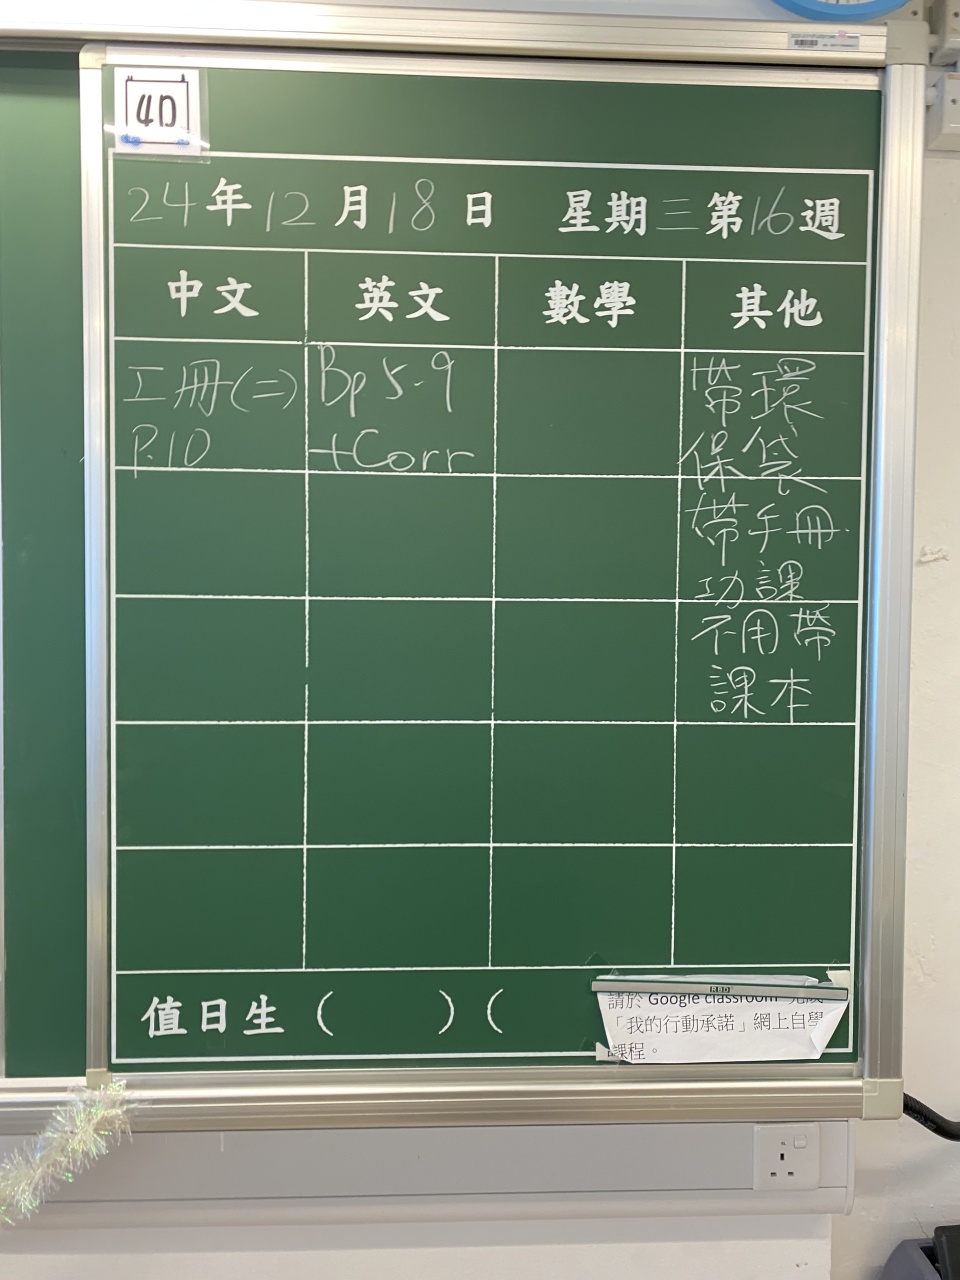 4D
24年12月18日 星期三第16週
中文 英文 數學 其他
工冊(二)
P.10
Bp 5-9
+Corr
帶環
保袋
帶手冊
功課
不用帶
課本
值日生 ( ) (
RBD
請於 Google classroom 完成
「我的行動承諾」網上自學
課程。